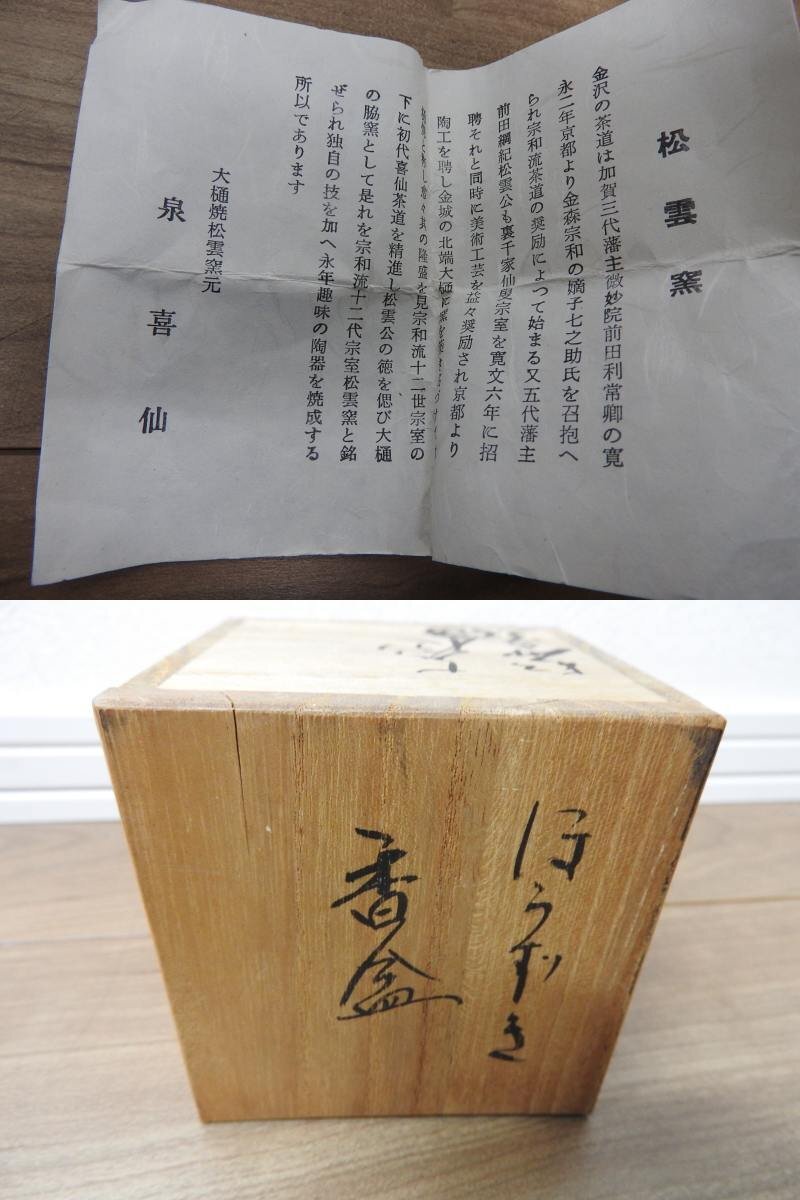 松雲窯
金沢の茶道は加賀三代藩主微妙院前田利常卿の寛
永二年京都より金森宗和の嫡子七之助氏を召抱へ
られ宗和流茶道の奨励によつて始まる又五代藩主
前田綱紀松雲公も裏千家仙叟宗室を寛文六年に招
聘それと同時に美術工芸を益々奨励され京都より
陶工を聘し金城の北端大樋に窯を
の隆盛を見宗和流十二世宗室の
下に初代喜仙茶道を精進し松雲公の徳を偲び大樋
の脇窯として是れを宗和流十二代宗室松雲窯と銘
ぜられ独自の技を加へ永年趣味の陶器を焼成する
所以であります
大樋焼松雲窯元
泉喜仙
ほうずき
香盒